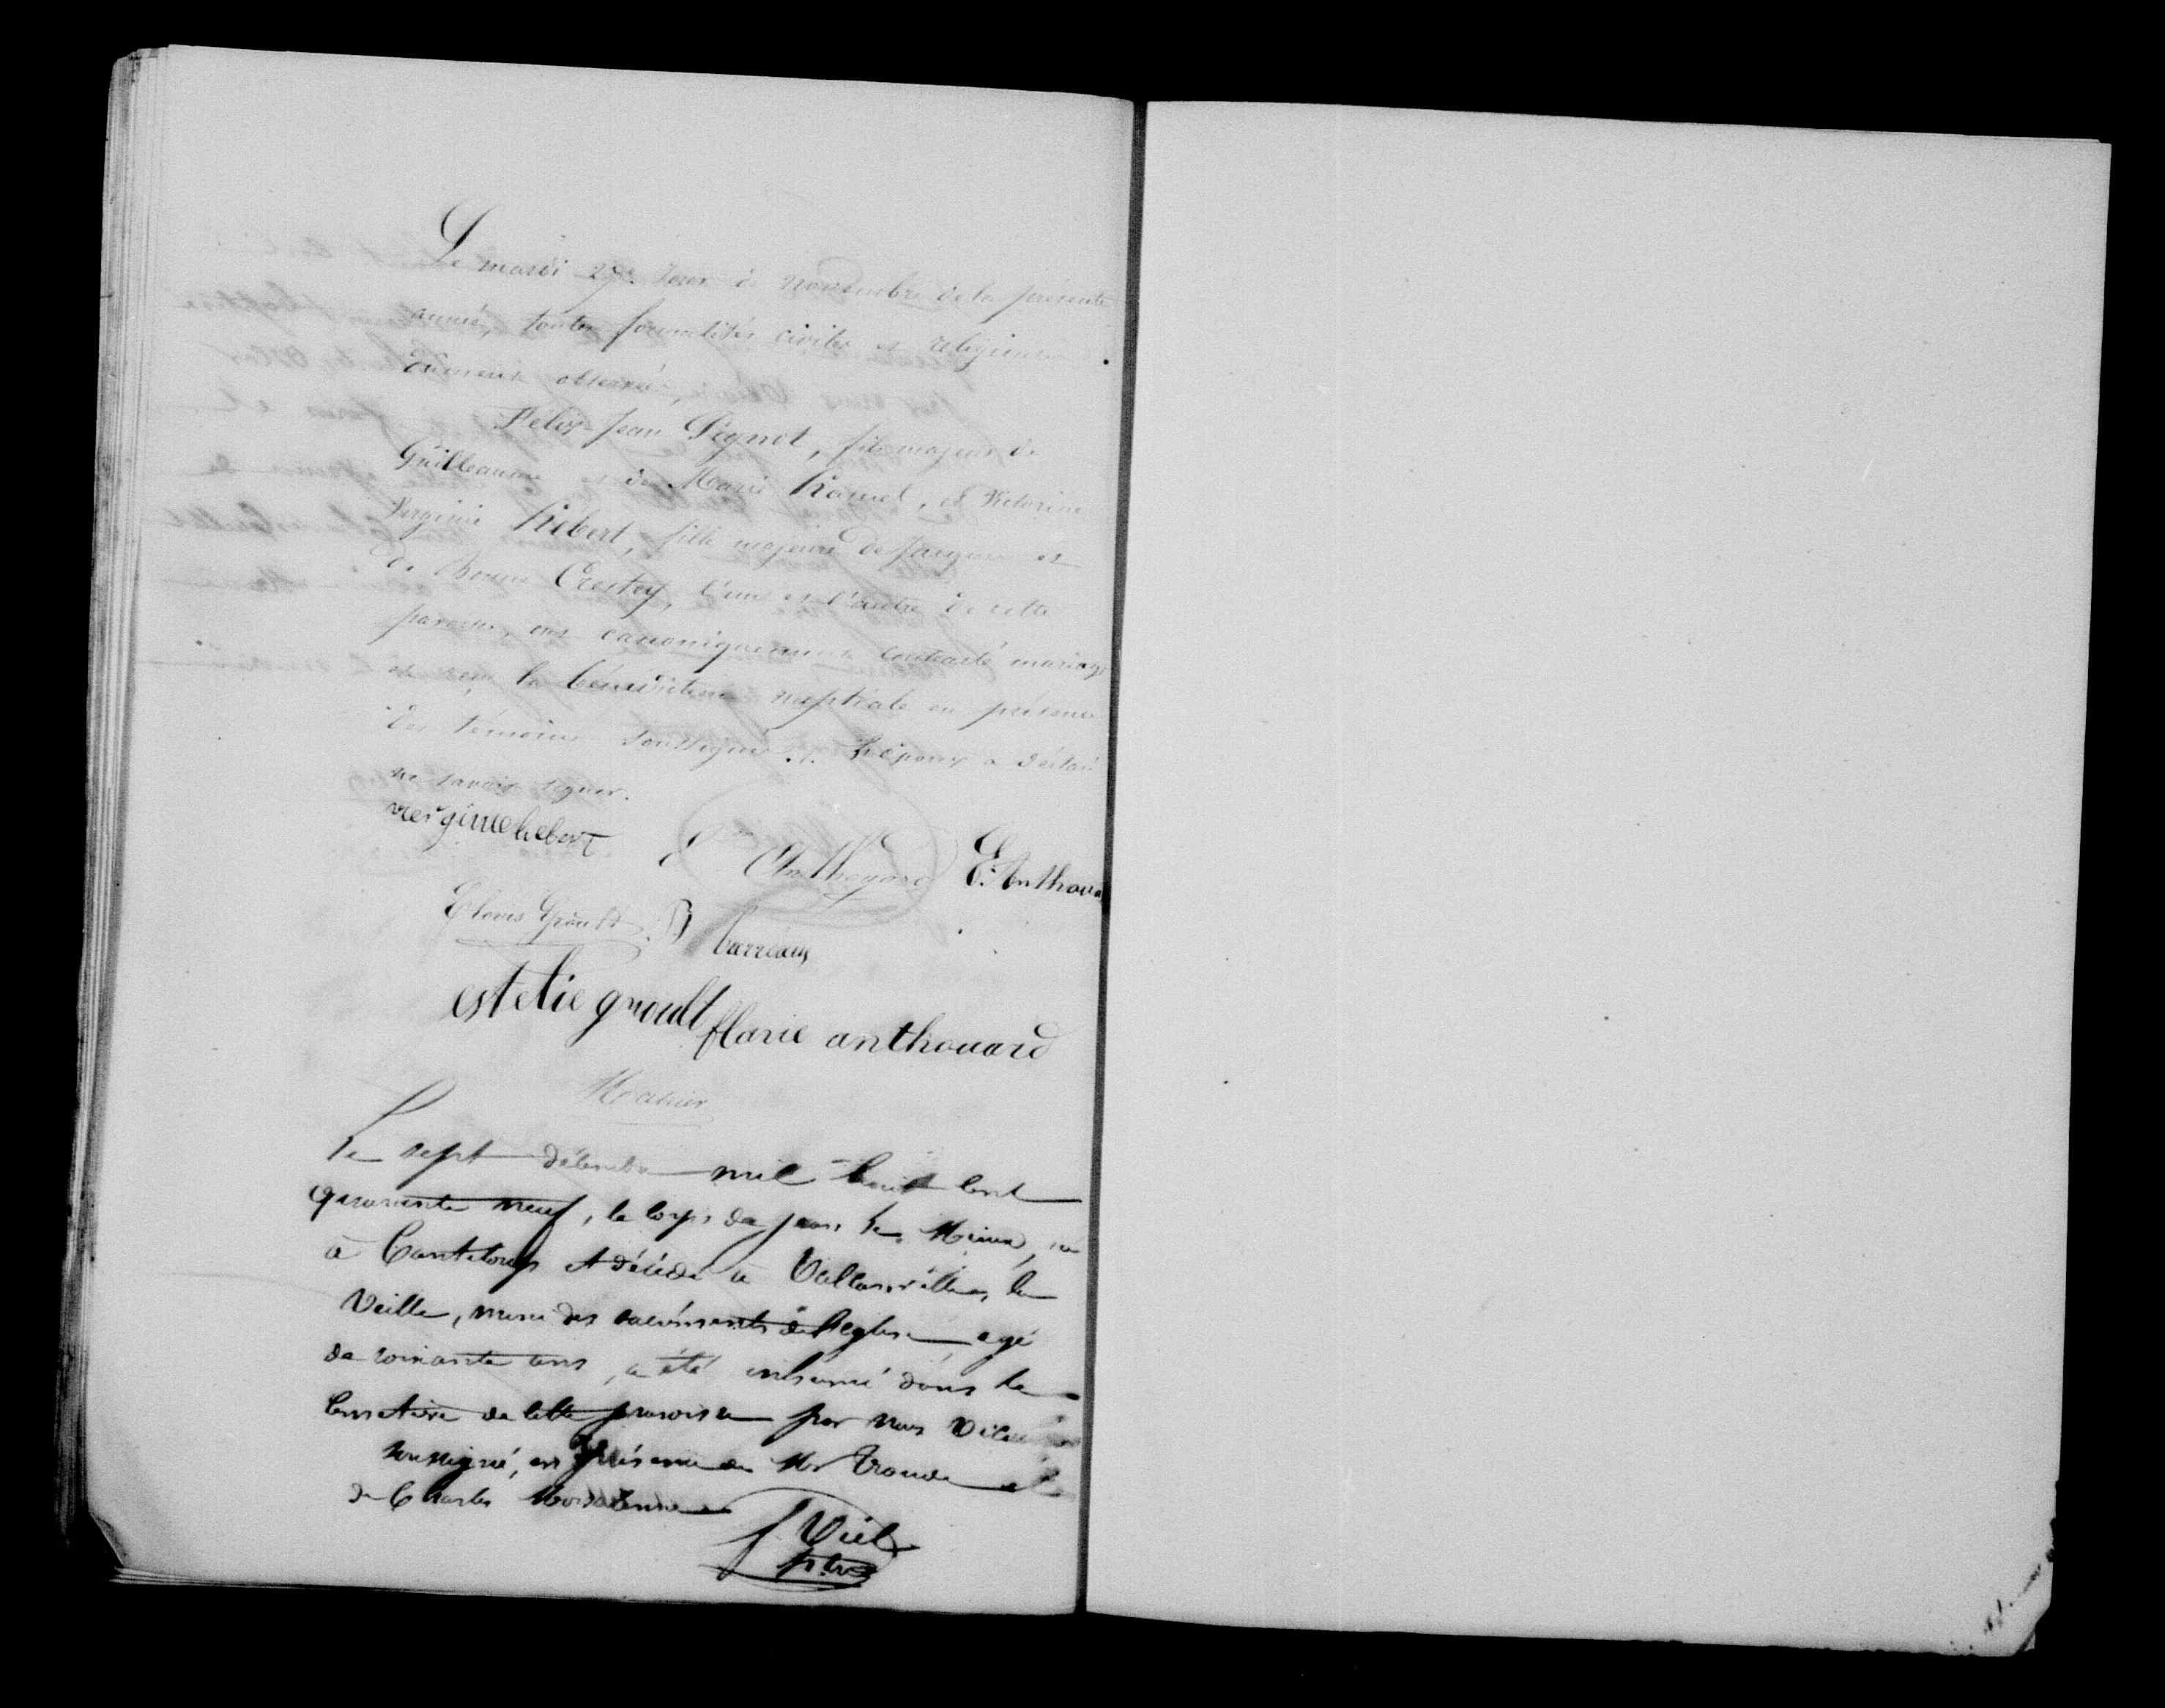 Le mardi 27e Jour de Novembre de la présente
année, toutes formalités civiles et religieuses
dûment observées,
Felix-Jean Lignot, fils majeur de
Guilleaume et de Marie Hamel, et Victorine
Virginie Hébert, fille majeure de Jacques et
de Bonne Crestey, l'un et l'autre de cette
paroisse, ont canoniquement contracté mariage
et reçu la bénédiction nuptiale en présence
des témoins soussignés. L'époux a déclaré
ne savoir signer.
virginie hebert Anthouard E. Anthouard
Clovis Groult B barreau
estelie groult flarie anthouard
Le sept décembre mil huit cent
quarante neuf, le corps de jean Le
à Canteloup et décédé à la
Veille, muni des sacrements de l'église, agé
de soixante ans, a été inhumé dans le
Cimetière de cette paroisse par nous Vicaire
soussigné, en présence de Mr Troude et
de Charles
Viel
ptre